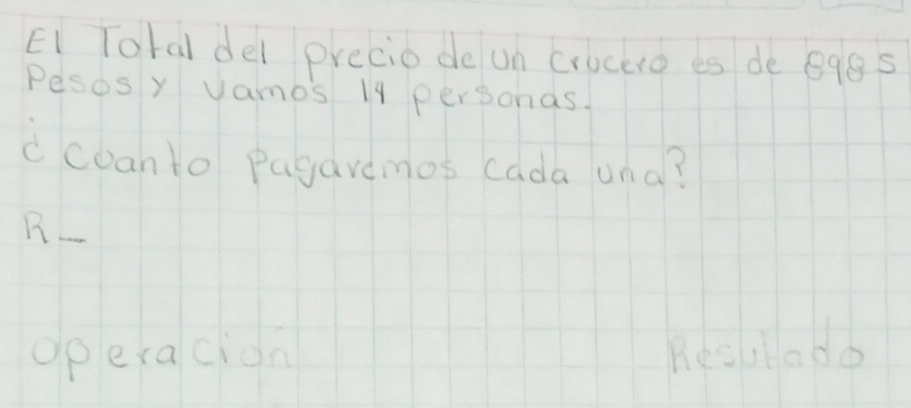 El Total del precio de un crucero es de 8985
Pesos y vamos 19 personas.
¿cuanto Pagaremos cada una?
R_
operación Resulado